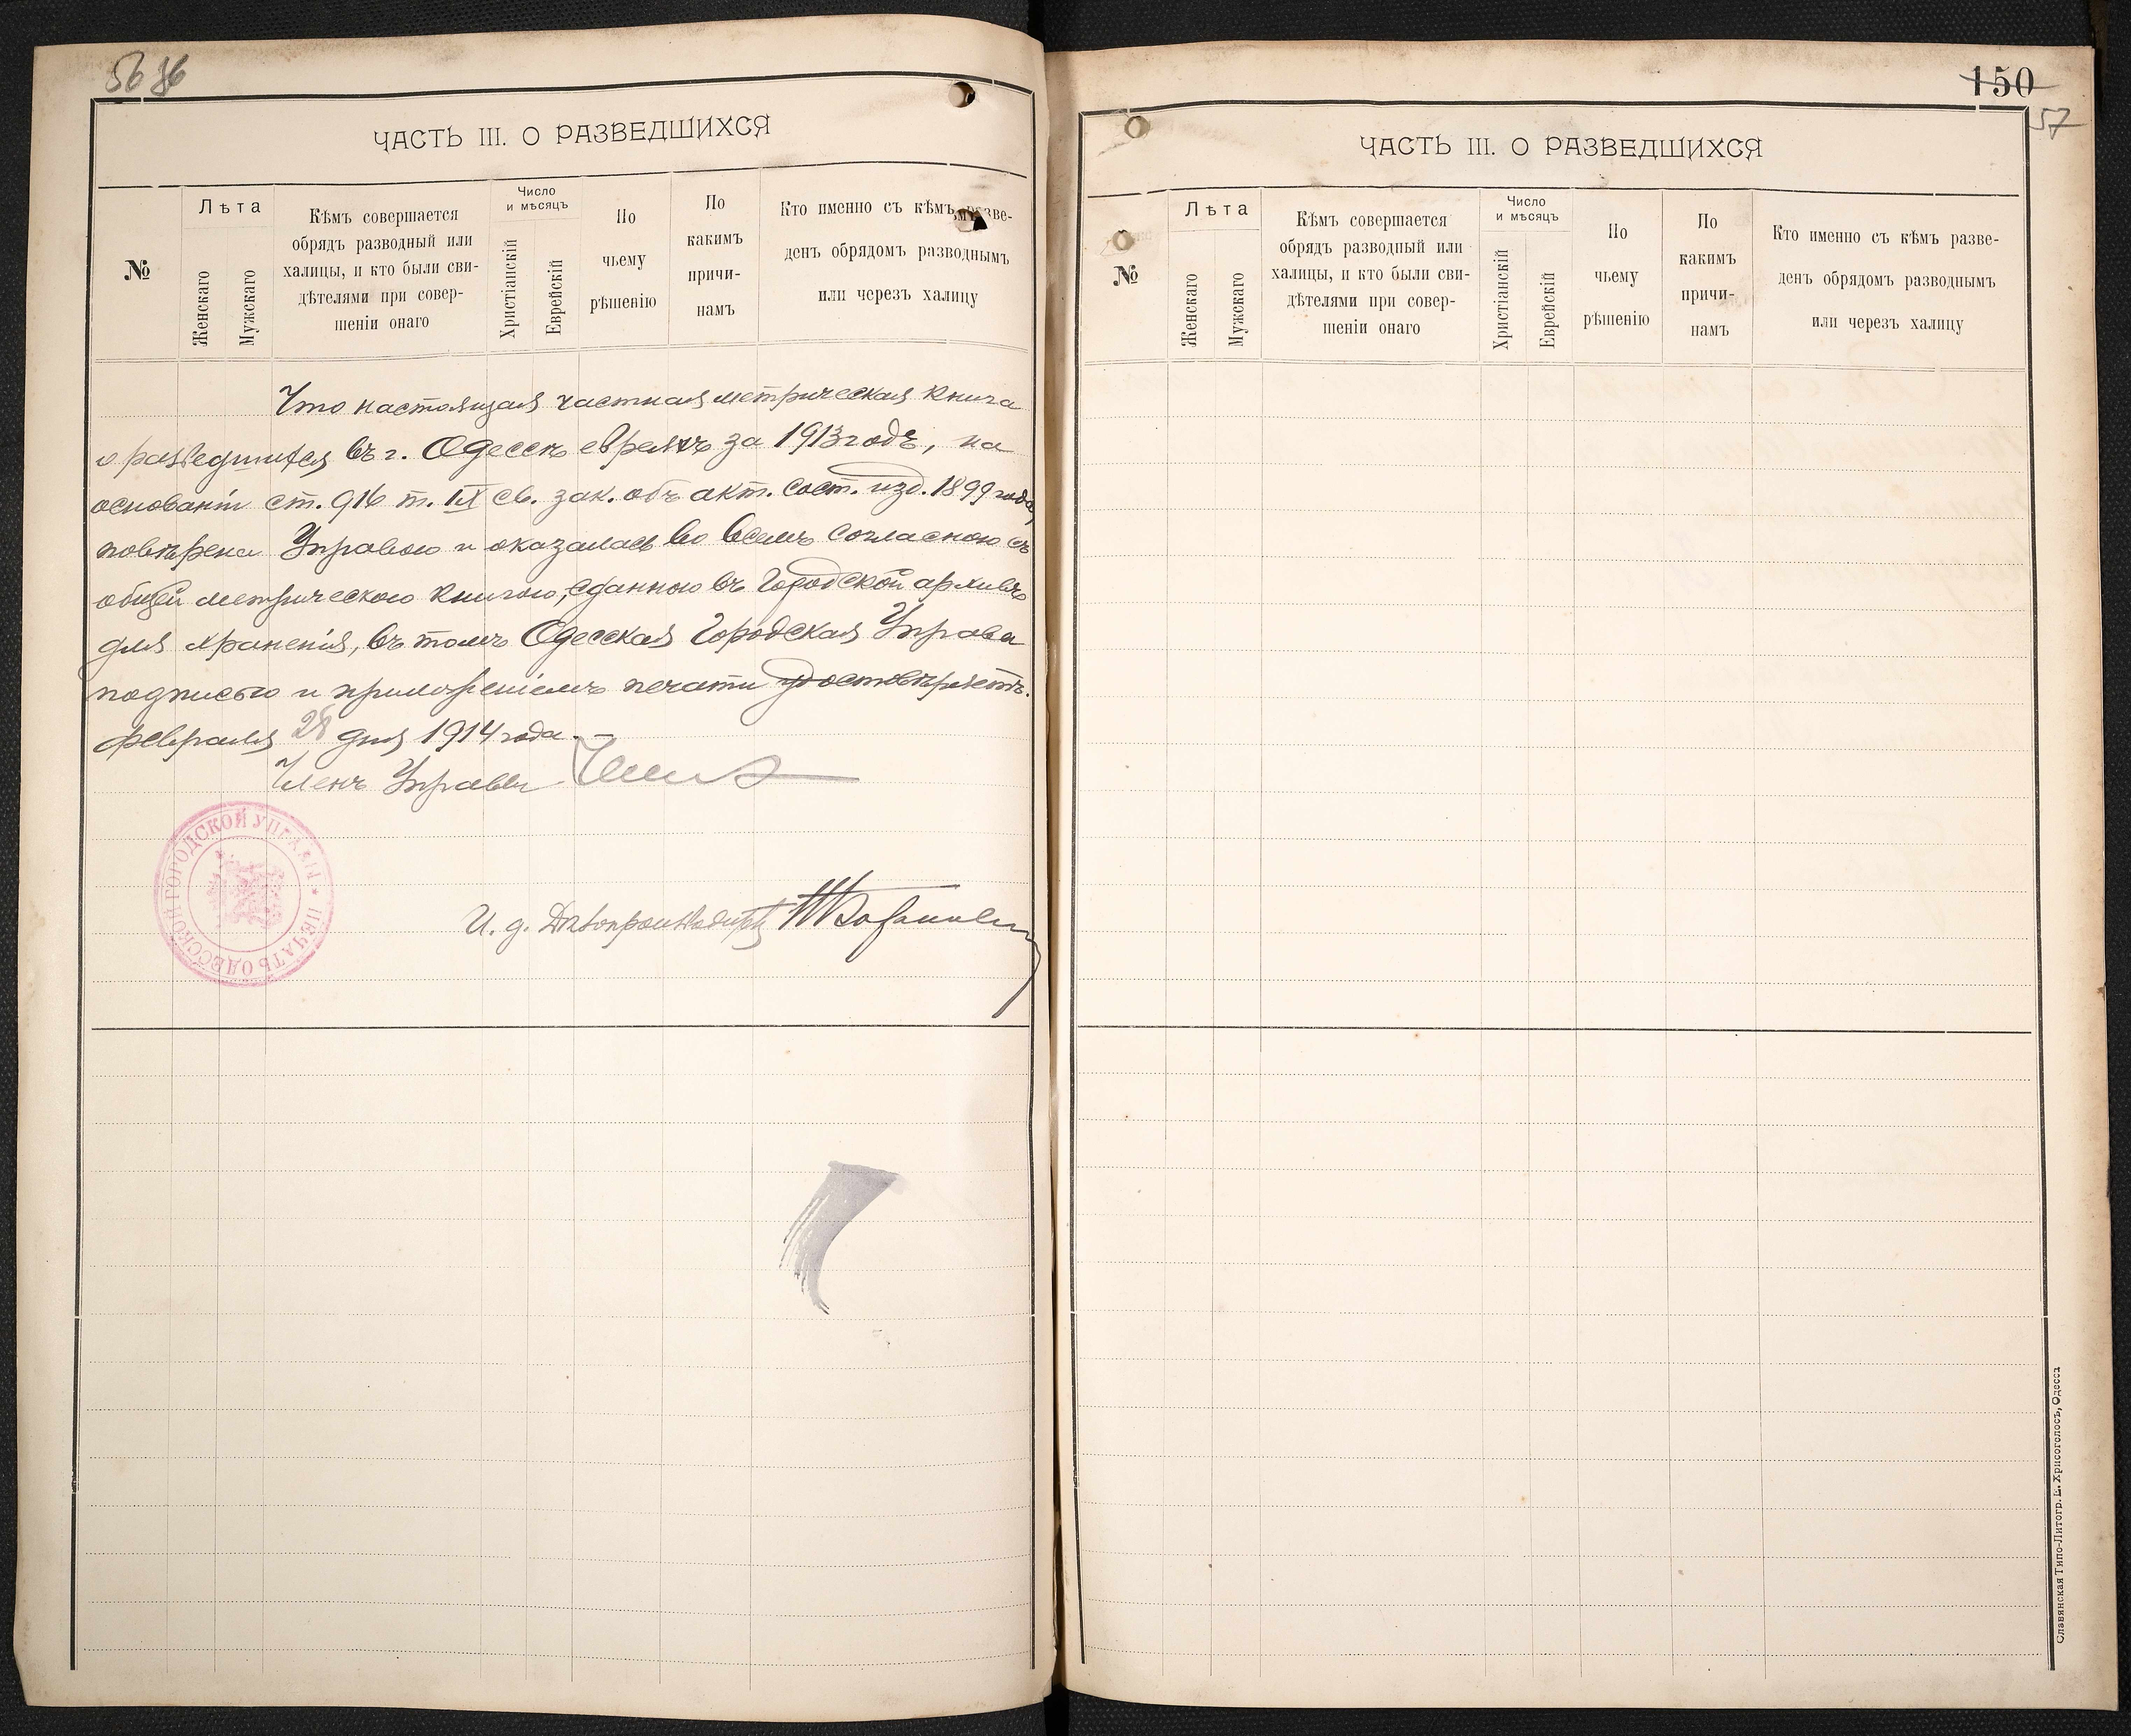 56 56
ЧАСТЬ III. О РАЗВЕДШИХСЯ
№
Лѣта
Женскаго
Мужскаго
Кѣмъ совершается
обрядъ разводный или
халицы, и кто были сви-
дѣтелями при совер-
шеніи онаго
Число
и мѣсяцъ
Христіанскій
Еврейскій
По
чьему
рѣшенію
По
какимъ
причи-
намъ
Кто именно съ кѣмъ разве-
денъ обрядомъ разводнымъ
или черезъ халицу
Что настоящая частная метрическая книга
о разведшихся въ г. Одессѣ евреяхъ за 1913 годъ, на
основаніи ст. 916 т. IX св. зак. объ акт. сост. изд. 1899 года,
повѣрена Управою и оказалась во всемъ согласною съ
общей метрическою книгою, сданною въ Городской архивъ
для храненія, въ томъ Одесская Городская Управа
подписью и приложеніемъ печати удостовѣряетъ.
Февраля 28 дня 1914 года.
Членъ Управы
ПЕЧАТЬ ОДЕССКОЙ ГОРОДСКОЙ УПРАВЫ
И. д. Дѣлопроизводителя
150
57
ЧАСТЬ III. О РАЗВЕДШИХСЯ
№
Лѣта
Женскаго
Мужскаго
Кѣмъ совершается
обрядъ разводный или
халицы, и кто были сви-
дѣтелями при совер-
шеніи онаго
Число
и мѣсяцъ
Христіанскій
Еврейскій
По
чьему
рѣшенію
По
какимъ
причи-
намъ
Кто именно съ кѣмъ разве-
денъ обрядомъ разводнымъ
или черезъ халицу
Славянская Типо-Литогр. Е. Хрисогелосъ, Одесса